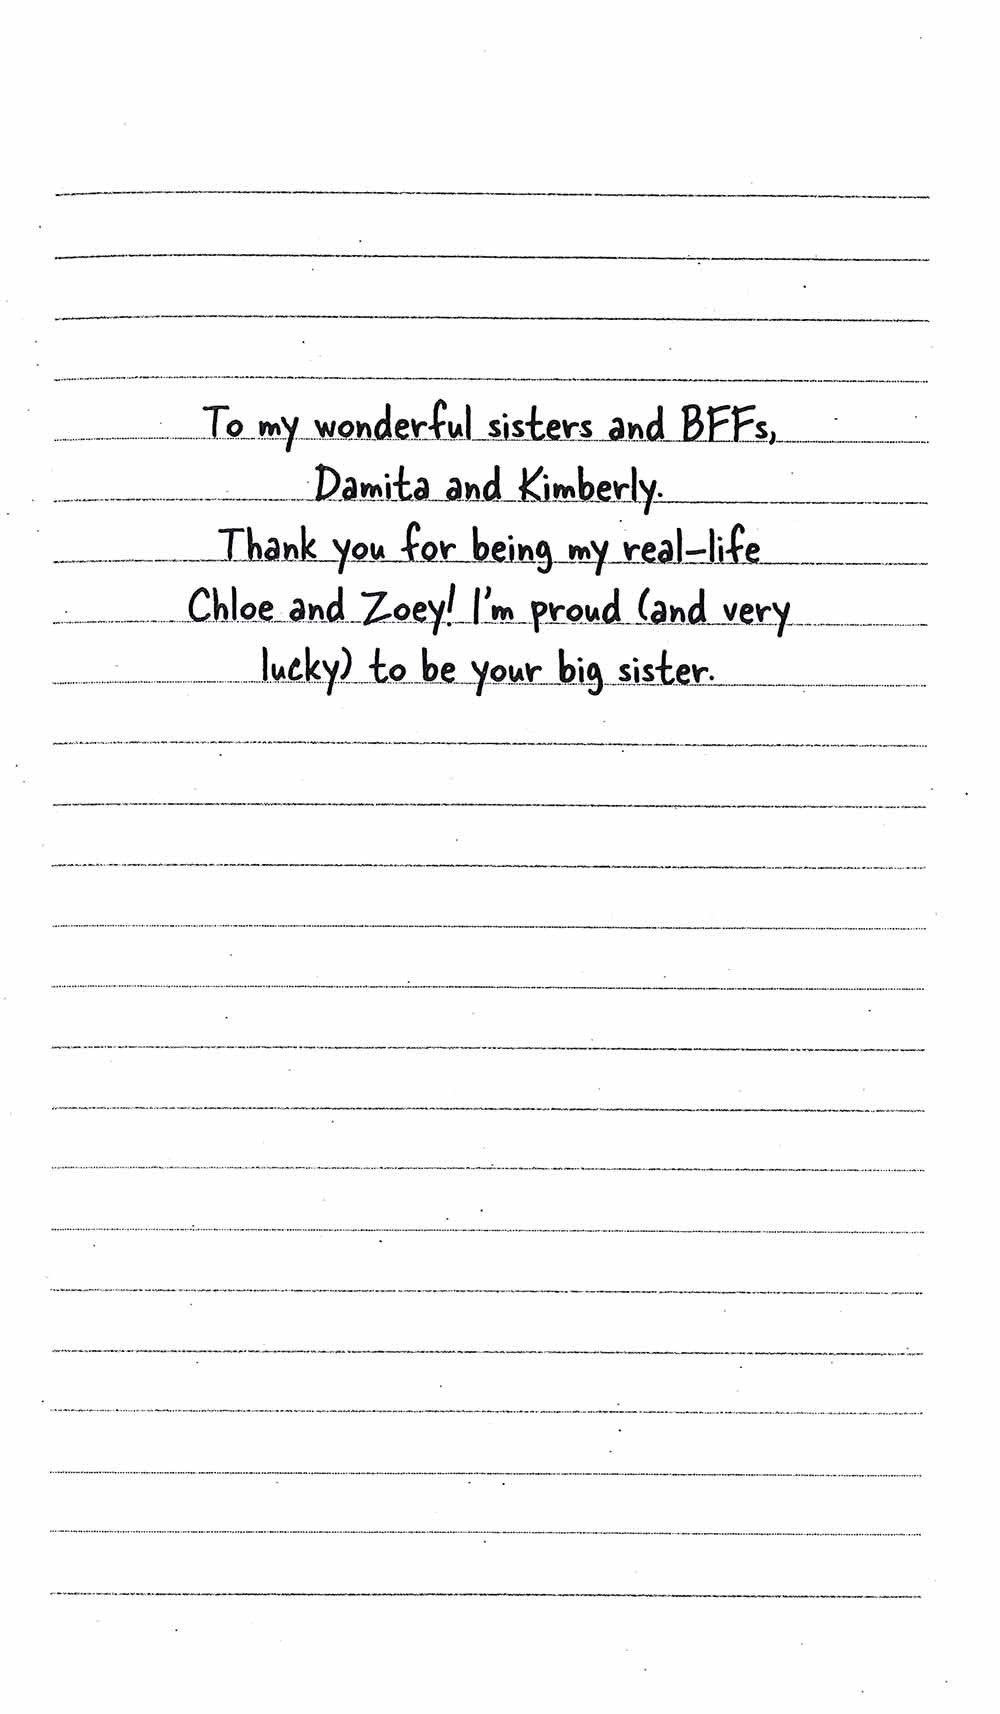 To my wonderful sisters and BFFs,
Damita and Kimberly.
Thank you for being my real-life
Chloe and Zoey! I'm proud (and very
lucky) to be your big sister.